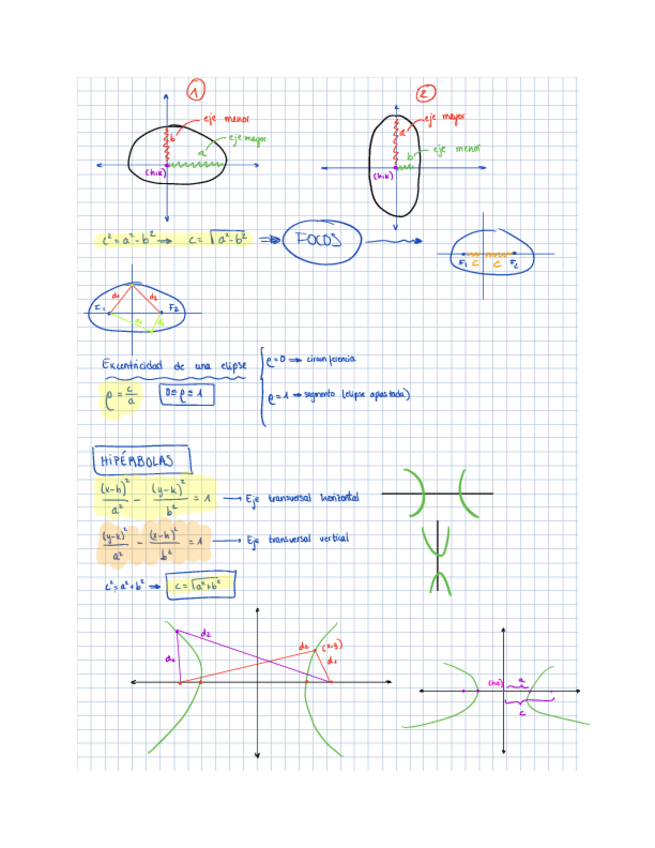 1
2
eje menor
b
eje mayor
a
(h,k)
eje mayor
a
eje menor
b
(h,k)
c² = a² - b² ⇒ c = √a² - b² ⇒ FOCOS
F₁ F₂
c c
d₁ d₂
F₁ F₂
Excentricidad de una elipse
e = 0 → circunferencia
e = c/a
0 ≤ e ≤ 1
e = 1 → segmento (elipse aplastada)
HIPÉRBOLAS
(x-h)²/a² - (y-k)²/b² = 1 → Eje transversal horizontal
(y-k)²/a² - (x-h)²/b² = 1 → Eje transversal vertical
c² = a² + b² → c = √a² + b²
d₂
d₁
d₂ (x,y)
d₁
(h,k) a
c